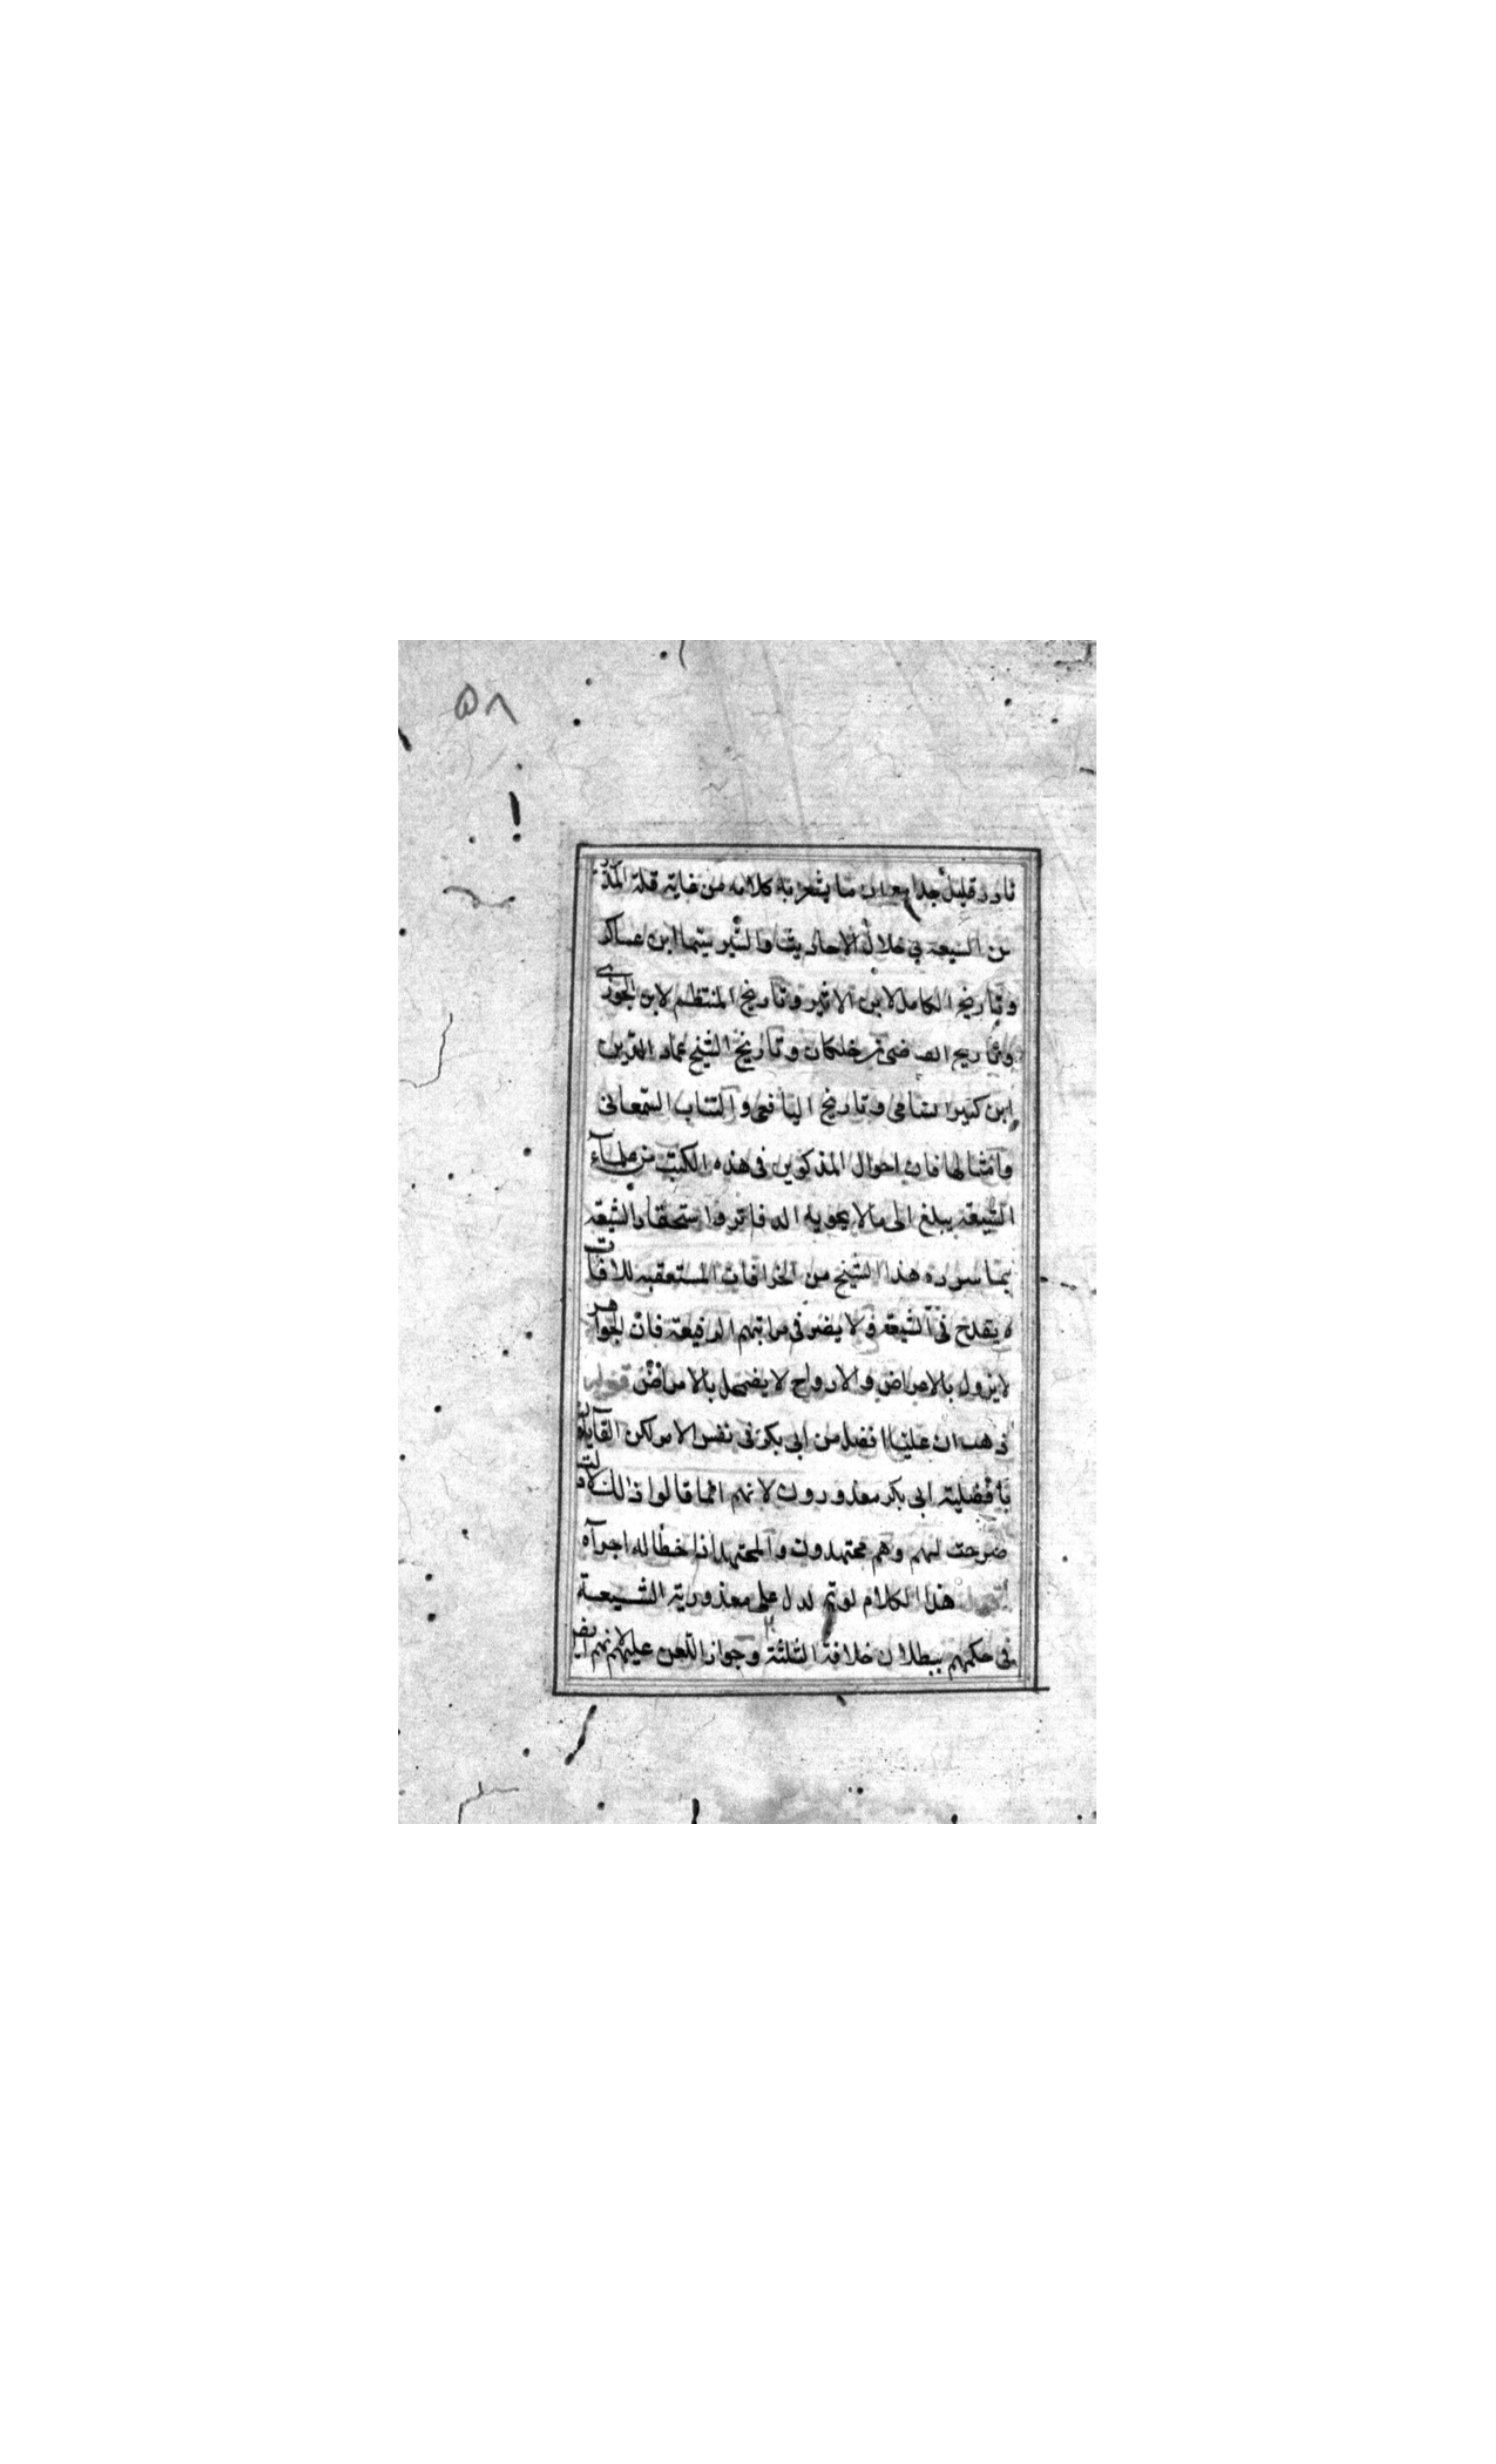 ۵۸
نادر قليل جدا مع ان ما يشعر به كلامه من غاية قلة المذ
من الشيعة في خلال الاحاديث والسير سيما ابن عساكر
وتاريخ الكامل لابن الاثير وتاريخ المنتظم لابن الجوزي
وتاريخ القاضي بن خلكان وتاريخ الشيخ عماد الدين
ابن كثير الشامي وتاريخ اليافعي و السمعاني
وامثالها فان احوال المذكورين في هذه الكتب من علمآء
الشيعة يبلغ الى ما لا يحويه الدفاتر واستحقار الشيعة
بما سرده هذا الشيخ من الخرافات المستعقبة للافات
لا يقدح في الشيعة ولا يضر في مراتبهم الرفيعة فان الجواهر
لا يزول بالاعراض والارواح لا يضمحل بالامراض قوله
ذهب ان عليا افضل من ابي بكر في نفس الامر لكن القآيلين
بافضلية ابي بكر معذورون لانهم انما قالوا ذلك لادلة
صرحت لهم وهم مجتهدون والمجتهد اذا اخطا له اجرآه
اقول هذا الكلام لو تم لدل على معذورية الشيعة
في حكمهم ببطلان خلافة الثلثة وجواز اللعن عليهم لانهم ايض